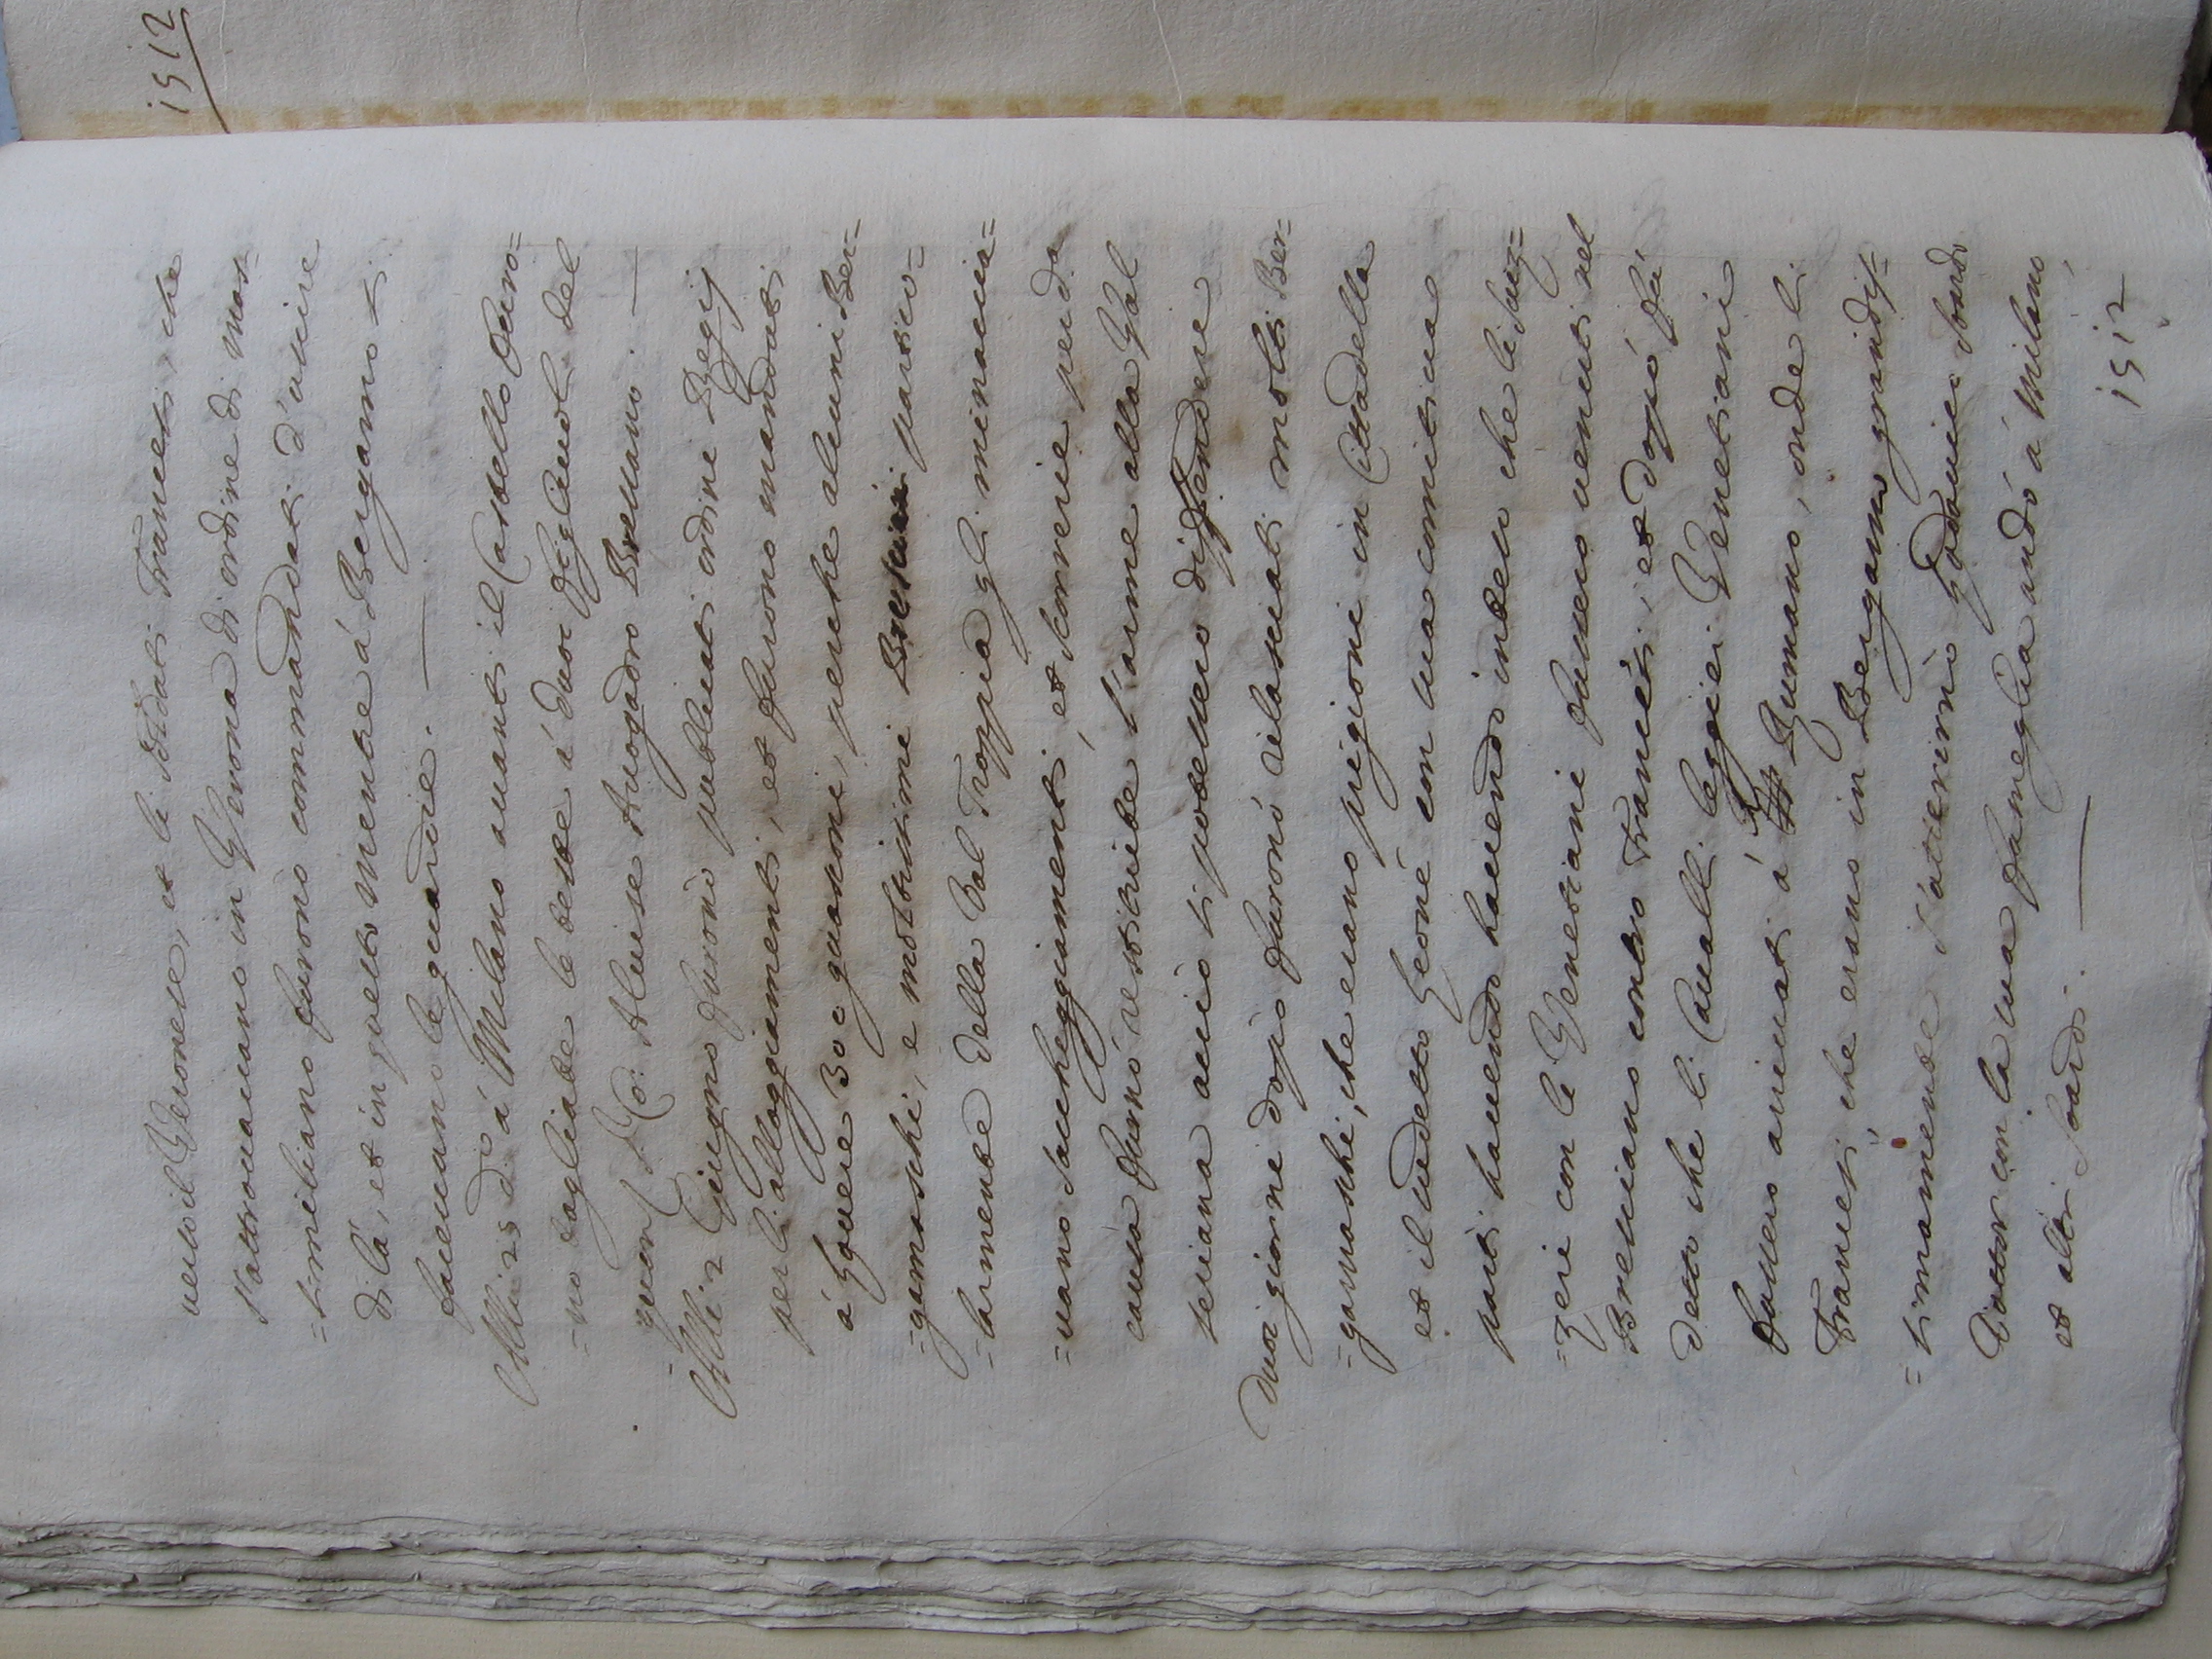 verso il Veronese, et li soldati Francesi, che
s'attrovavano in Verona di ordine di Mas=
=similiano furono commandati d'uscire
di là, et in questo mentre à Bergamo si
facevano le guardie.
Alli 25 d.º à Milano avanti il Castello furo=
=no tagliate le teste à duoi figliuoli del
=quon. S. Co: Aluise Avogadro Bressano.
Alli 2 Giugno furono publicati ordini Regij
per li alloggiamenti, et furono mandati
à Lovere 300 guasconi, perche alcuni Ber=
=gamaschi, e moltissimi partico=
=larmente della Val Troppia gli minaccia=
=vano saccheggiamenti, et scorrerie per da
causa furno restituite l'arme alla Val
seriana acciò si potessero diffendere
Duoi giorni dopo furono rilasciati molti Ber=
=gamaschi, che erano prigioni in Cittadella
et il sudetto Leoné con sua comitiva
partì havendo havendo inteso che li Suiz=
=zeri con li Venetiani fussero venuti nel
Bressano contro Francesi, et dopò fù
detto che li Cavalli leggieri Venetiani
fussero arrivati à Rumano, onde li
Francesi che erano in Bergamo grandis=
=simamente s'atterirno Lodovico Soardo
Dottor con la sua fameglia andò à Milano
et altri Soardi.
1512
1512